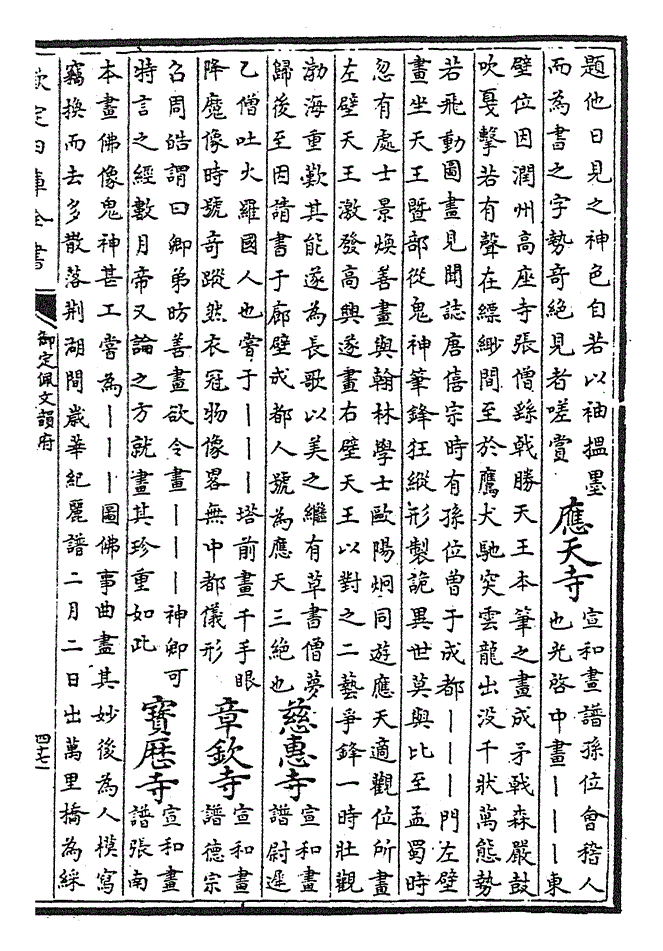 題他日見之神色自若以袖搵墨
而為書之字勢奇絕見者嗟賞
應天寺
宣和畫譜孫位會稽人
也光啓中畫｜｜｜東
壁位因潤州高座寺張僧繇戰勝天王本筆之畫成矛戟森嚴鼓
吹戛擊若有聲在縹緲間至於鷹犬馳突雲龍出没千狀萬態勢
若飛動圖畫見聞誌唐僖宗時有孫位曾于成都｜｜｜門左壁
畫坐天王暨部從鬼神筆鋒狂縱形製詭異世莫與比至孟蜀時
忽有處士景煥善畫與翰林學士歐陽炯同遊應天適觀位所畫
左壁天王激發高興遂畫右壁天王以對之二藝爭鋒一時壯觀
渤海重歎其能遂為長歌以美之繼有草書僧夢
歸後至因請書于廊壁成都人號為應天三絶也
慈惠寺
宣和畫
譜尉遲
乙僧吐火羅國人也嘗于｜｜｜塔前畫千手眼
降魔像時號奇蹤然衣冠物像畧無中都儀形
章欽寺
宣和畫
譜德宗
召周皓謂曰卿弟昉善畫欲令畫｜｜｜神卿可
特言之經數月帝又論之方就畫其珍重如此
寶曆寺
宣和畫
譜張南
本畫佛像鬼神甚工嘗為｜｜｜圖佛事曲盡其妙後為人模寫
竊換而去多散落荆湖間歲華紀麗譜二月二日出萬里橋為綵
欽定四庫全書
御定佩文韻府
四十七